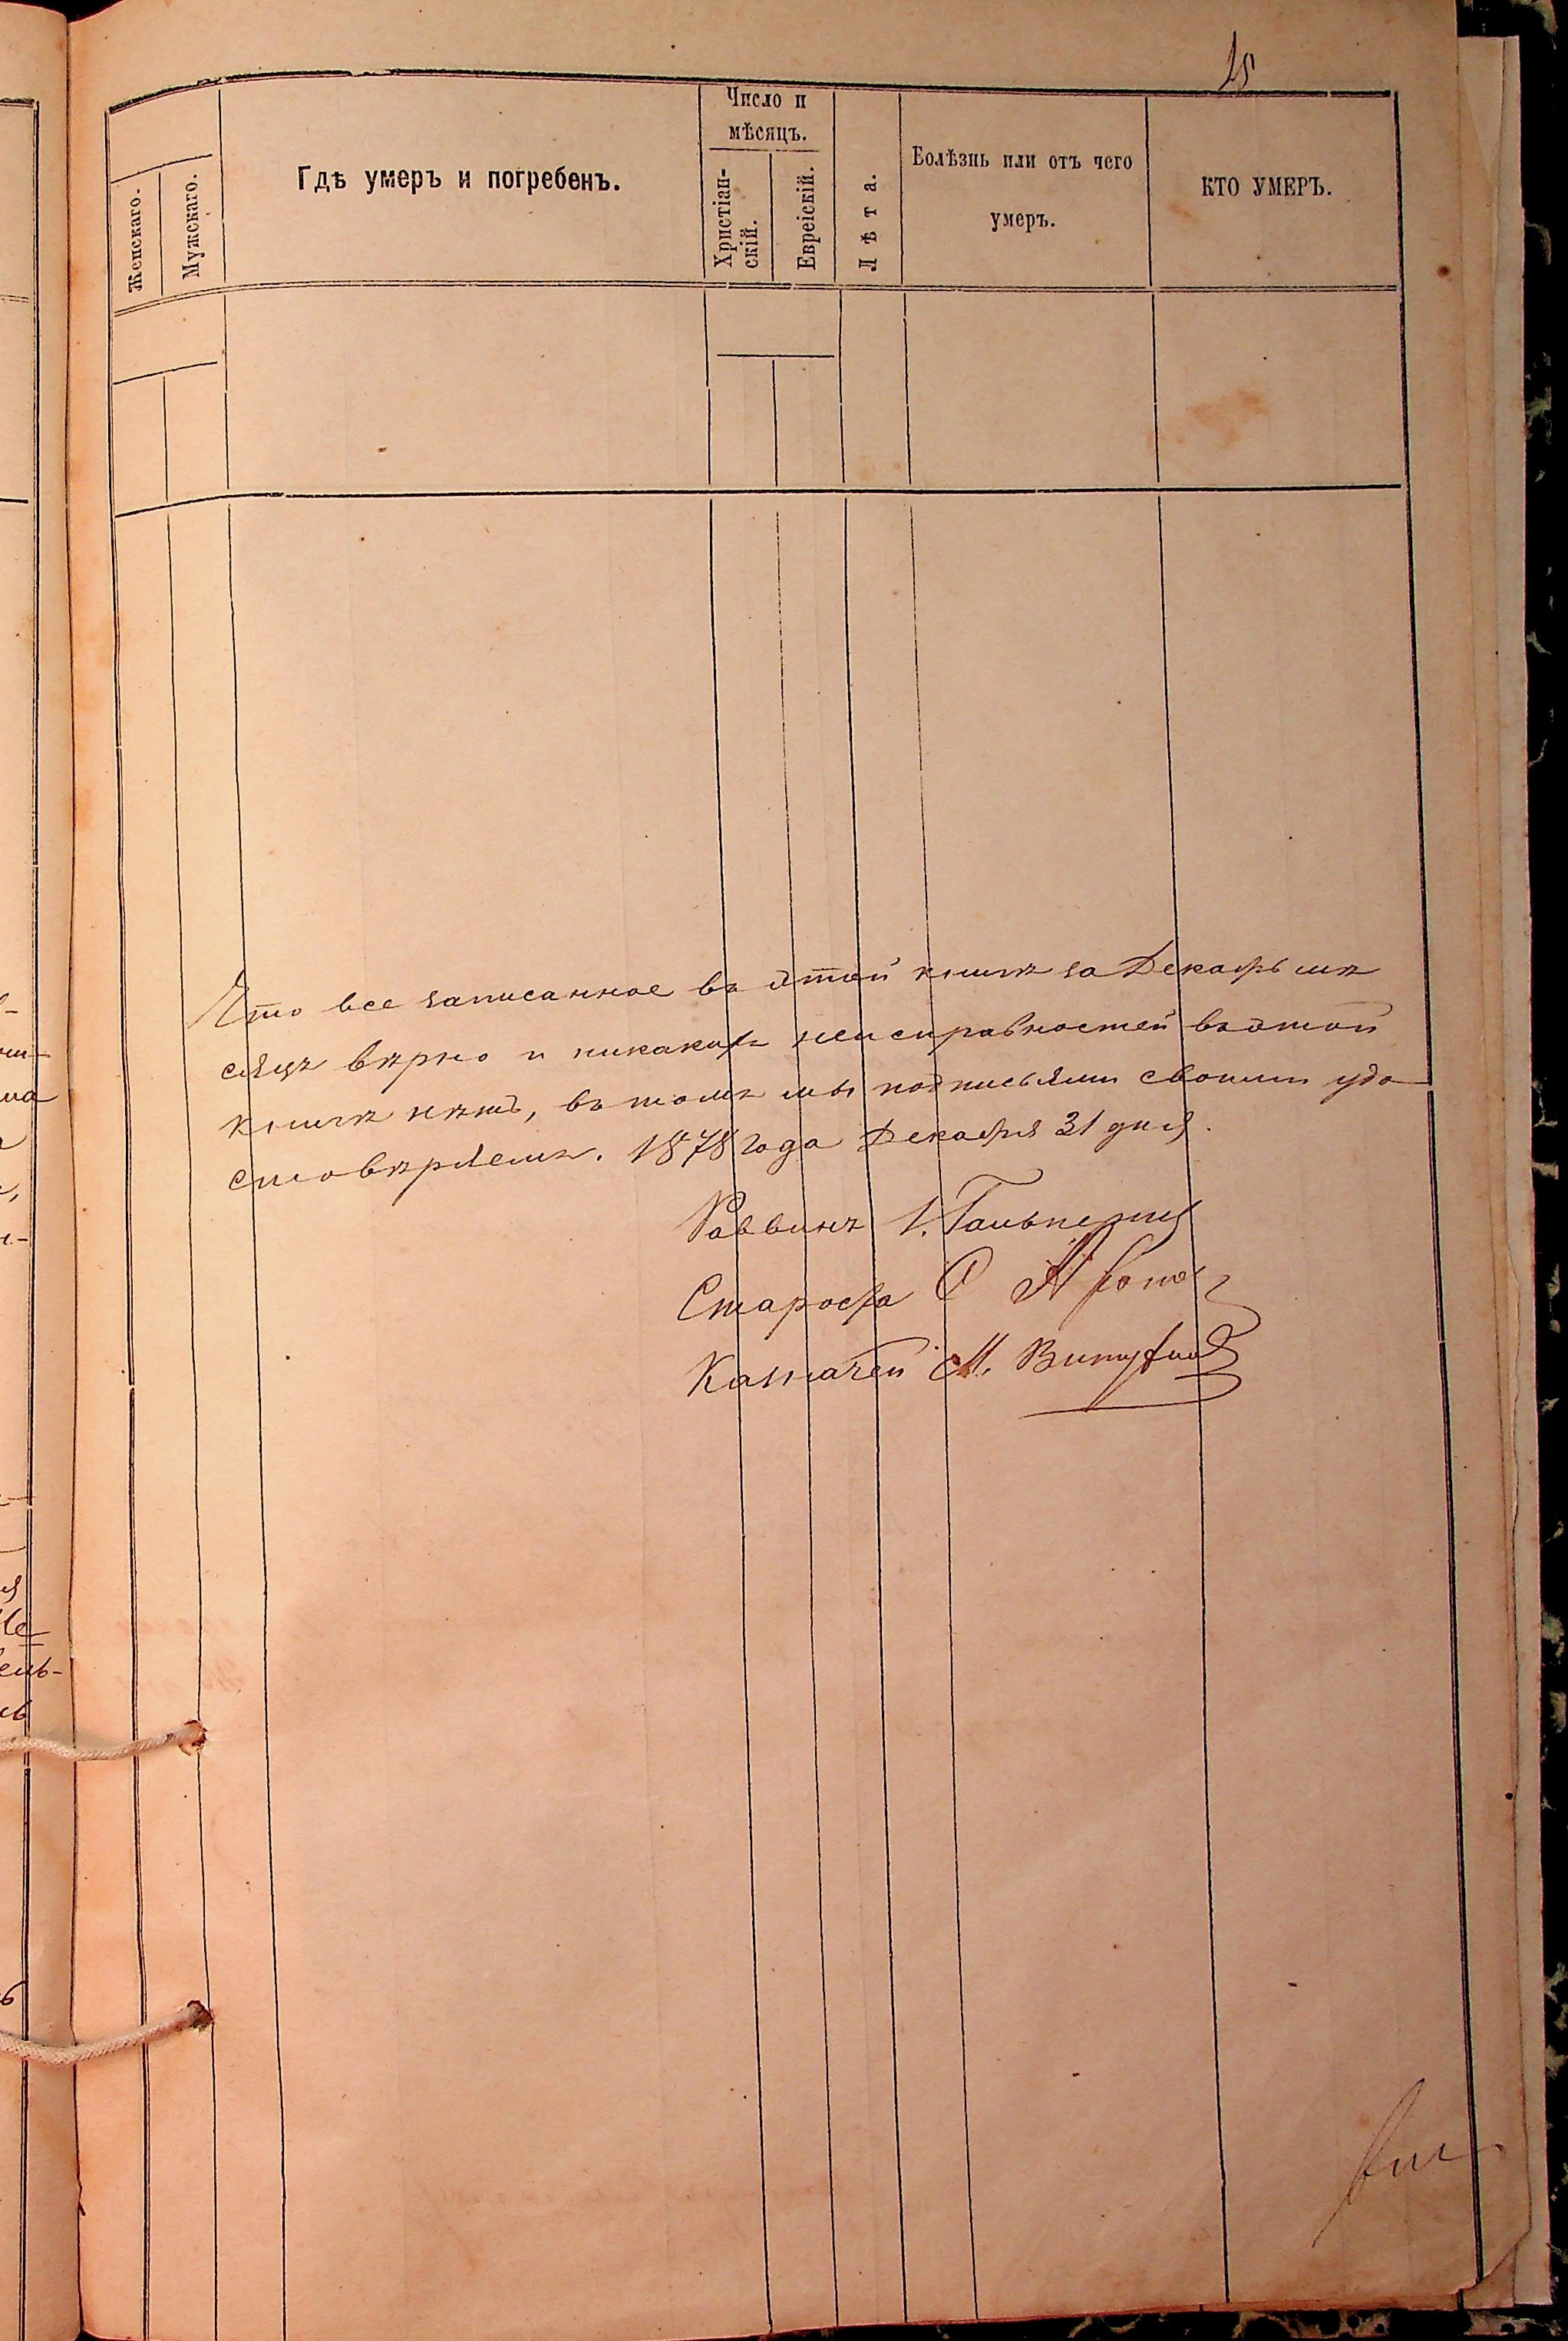 15
Женскаго.
Мужскаго.
Гдѣ умеръ и погребенъ.
Число и
мѣсяцъ.
Христіан-
скій.
Еврейскій.
Лѣта.
Болѣзнь или отъ чего
умеръ.
КТО УМЕРЪ.
Что все записанное въ этой книгѣ за Декабрь мѣ
сяцъ вѣрно и никакихъ неисправностей въ этой
книгѣ нѣтъ, въ томъ мы подписьями своими удо
стовѣряемъ. 1878 года Декабря 31 дня.
Раввинъ І. Гальпернъ
Староста
Казначей М.